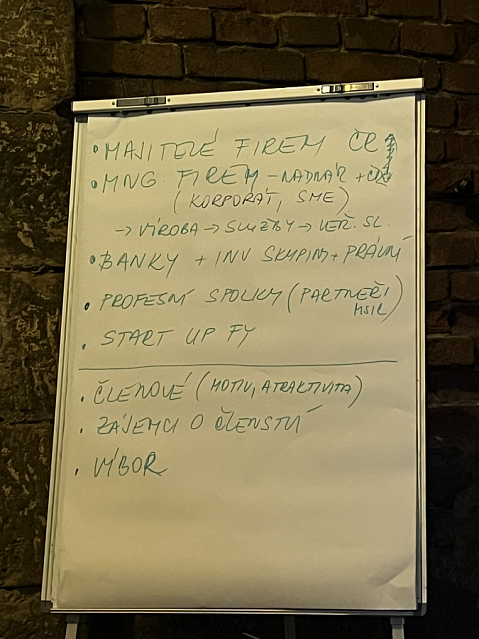 • MAJITELÉ FIREM ČR
• MNG FIREM - NADNÁR + ČR
(KORPORÁT, SME)
→ VÝROBA → SLUŽBY → VEŘ. SL.
• BANKY + INV SKUPINY + PRÁVNÍ
• PROFESNÍ SPOLKY (PARTNEŘI
• START UP FY
• ČLENOVÉ (MOTIV, ATRAKTIVITA)
• ZÁJEMCI O ČLENSTVÍ
• VÝBOR